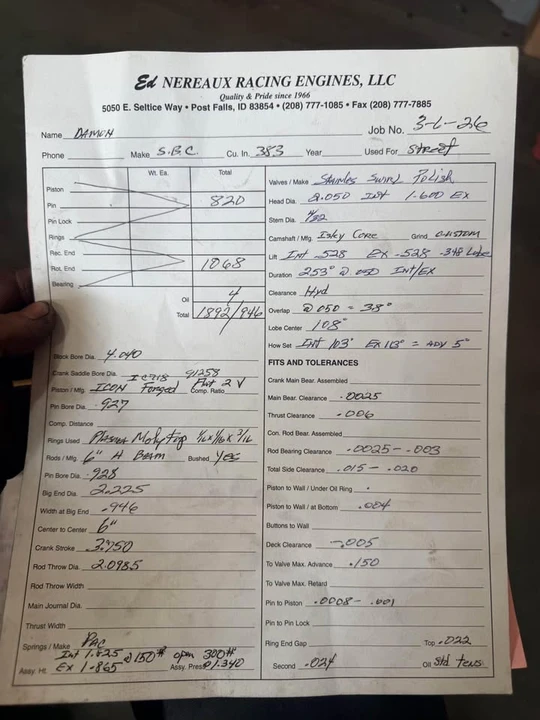 Ed NEREAUX RACING ENGINES, LLC
Quality & Pride since 1966
5050 E. Seltice Way • Post Falls, ID 83854 • (208) 777-1085 • Fax (208) 777-7885
Name DAMON Job No. 3-6-26
Phone Make S.B.C. Cu. In. 383 Year Used For Street
Wt. Ea. Total
Piston
Pin 820
Pin Lock
Rings
Rec. End
Rot. End 1068
Bearing
Oil 4
Total 1892/946
Block Bore Dia. 4.040
Crank Saddle Bore Dia.
IC718 91258
Piston / Mfg. ICON Forged Flat 2 V Comp. Ratio
Pin Bore Dia. .927
Comp. Distance
Rings Used Plasma Moly Top 1/16 x 1/16 x 3/16
Rods / Mfg. 6" H Beam Bushed Yes
Pin Bore Dia. .928
Big End Dia. 2.225
Width at Big End .946
Center to Center 6"
Crank Stroke 3.750
Rod Throw Dia. 2.0985
Rod Throw Width
Main Journal Dia.
Thrust Width
Springs / Make Pac
Int 1.825 @ 150# open 300#
Assy. Ht. Ex 1.865 Assy. Press @ 1.340
Valves / Make Stainless Swirl Polish
Head Dia. 2.050 Int 1.600 Ex
Stem Dia. 11/32
Camshaft / Mfg. Isky Core Grind CUSTOM
Lift Int .528 Ex .528 .348 Lobe
Duration 253° @ .050 Int/Ex
Clearance Hyd
Overlap @ 050 = 38°
Lobe Center 108°
How Set Int 103° Ex 113° = ADV 5°
FITS AND TOLERANCES
Crank Main Bear. Assembled
Main Bear. Clearance .0025
Thrust Clearance .006
Con. Rod Bear. Assembled
Rod Bearing Clearance .0025 - .003
Total Side Clearance .015 - .020
Piston to Wall / Under Oil Ring
Piston to Wall / at Bottom .004
Buttons to Wall
Deck Clearance -.005
To Valve Max. Advance .150
To Valve Max. Retard
Pin to Piston .0008 - .001
Pin to Pin Lock
Ring End Gap Top .022
Second .024 Oil Std tens